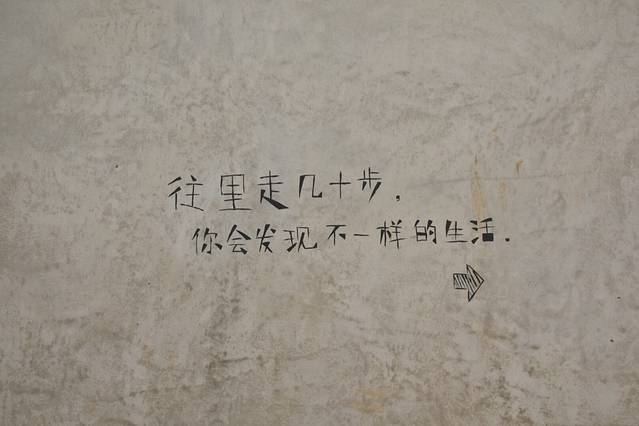 往里走几十步，
你会发现不一样的生活.